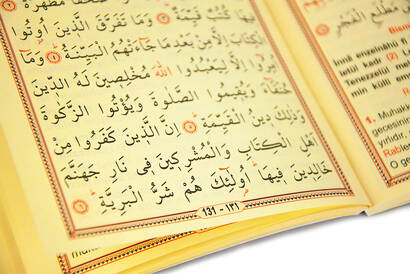 صُحُفًا مُطَهَّرَةً
فِيهَا كُتُبٌ قَيِّمَةٌ ﴿٣﴾ وَمَا تَفَرَّقَ الَّذِينَ اُوتُوا
الْكِتَابَ اِلَّا مِنْ بَعْدِ مَا جَاءَتْهُمُ الْبَيِّنَةُ ﴿٤﴾ وَمَا
اُمِرُوا اِلَّا لِيَعْبُدُوا اللّٰهَ مُخْلِصِينَ لَهُ الدِّينَ
حُنَفَاءَ وَيُقِيمُوا الصَّلٰوةَ وَيُؤْتُوا الزَّكٰوةَ
وَذٰلِكَ دِينُ الْقَيِّمَةِ ﴿٥﴾ اِنَّ الَّذِينَ كَفَرُوا مِنْ
اَهْلِ الْكِتَابِ وَالْمُشْرِكِينَ فِى نَارِ جَهَنَّمَ
خَالِدِينَ فِيهَا اُولٰئِكَ هُمْ شَرُّ الْبَرِيَّةِ ﴿٦﴾
131 - ١٣١
مَطْلَعِ الْفَجْرِ
İnnâ enzelnâhü fî
letül kad
Tenezzelül
min külli
1. Muhak
gecesinin
yırlıdır.